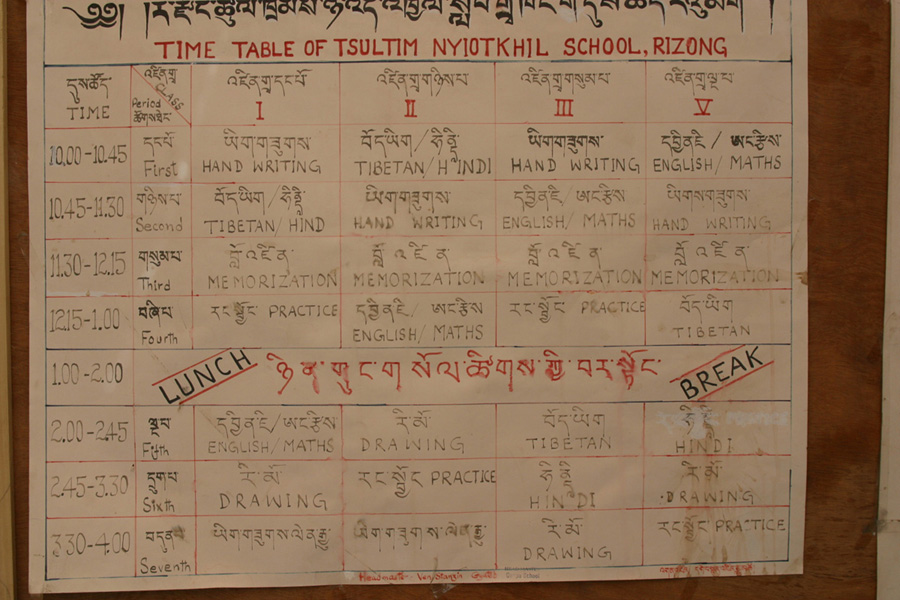 TIME TABLE OF TSULTIM NYIOTKHIL SCHOOL, RIZONG
དུས་ཚོད་ འཛིན་གྲྭ CLASS འཛིན་གྲྭ་དང་པོ འཛིན་གྲྭ་གཉིས་པ འཛིན་གྲྭ་གསུམ་པ འཛིན་གྲྭ་ལྔ་པ
TIME Period I II III V
10.00-10.45 དང་པོ ཡིག་གཟུགས་ བོད་ཡིག/ཧིནྡི ཡིག་གཟུགས་ དབྱིན་ཇི/ཨང་རྩིས
First HAND WRITING TIBETAN/HINDI HAND WRITING ENGLISH/MATHS
10.45-11.30 གཉིས་པ བོད་ཡིག/ཧིནྡི ཡིག་གཟུགས་ དབྱིན་ཇི/ཨང་རྩིས ཡིག་གཟུགས་
Second TIBETAN/HIND HAND WRITING ENGLISH/MATHS HAND WRITING
11.30-12.15 གསུམ་པ བློ་འཛིན་ བློ་འཛིན་ བློ་འཛིན་ བློ་འཛིན་
Third MEMORIZATION MEMORIZATION MEMORIZATION MEMORIZATION
12.15-1.00 བཞི་པ རང་སྦྱོང་ PRACTICE དབྱིན་ཇི/ཨང་རྩིས རང་སྦྱོང་ PRACTICE བོད་ཡིག
Fourth ENGLISH/MATHS TIBETAN
1.00-2.00 LUNCH ཉིན་གུང་ག སོལ་ཚིགས་ཀྱི་བར་སྟོང་ BREAK
2.00-2.45 ལྔ་པ དབྱིན་ཇི/ཨང་རྩིས རི་མོ བོད་ཡིག ཧིནྡི
Fifth ENGLISH/MATHS DRAWING TIBETAN HINDI
2.45-3.30 དྲུག་པ རི་མོ རང་སྦྱོང PRACTICE ཧིནྡི རི་མོ
Sixth DRAWING HINDI DRAWING
3.30-4.00 བདུན་པ ཡིག་གཟུགས་ ཡིག་གཟུགས་ རི་མོ རང་སྦྱོང་ PRACTICE
Seventh DRAWING
Headmaster